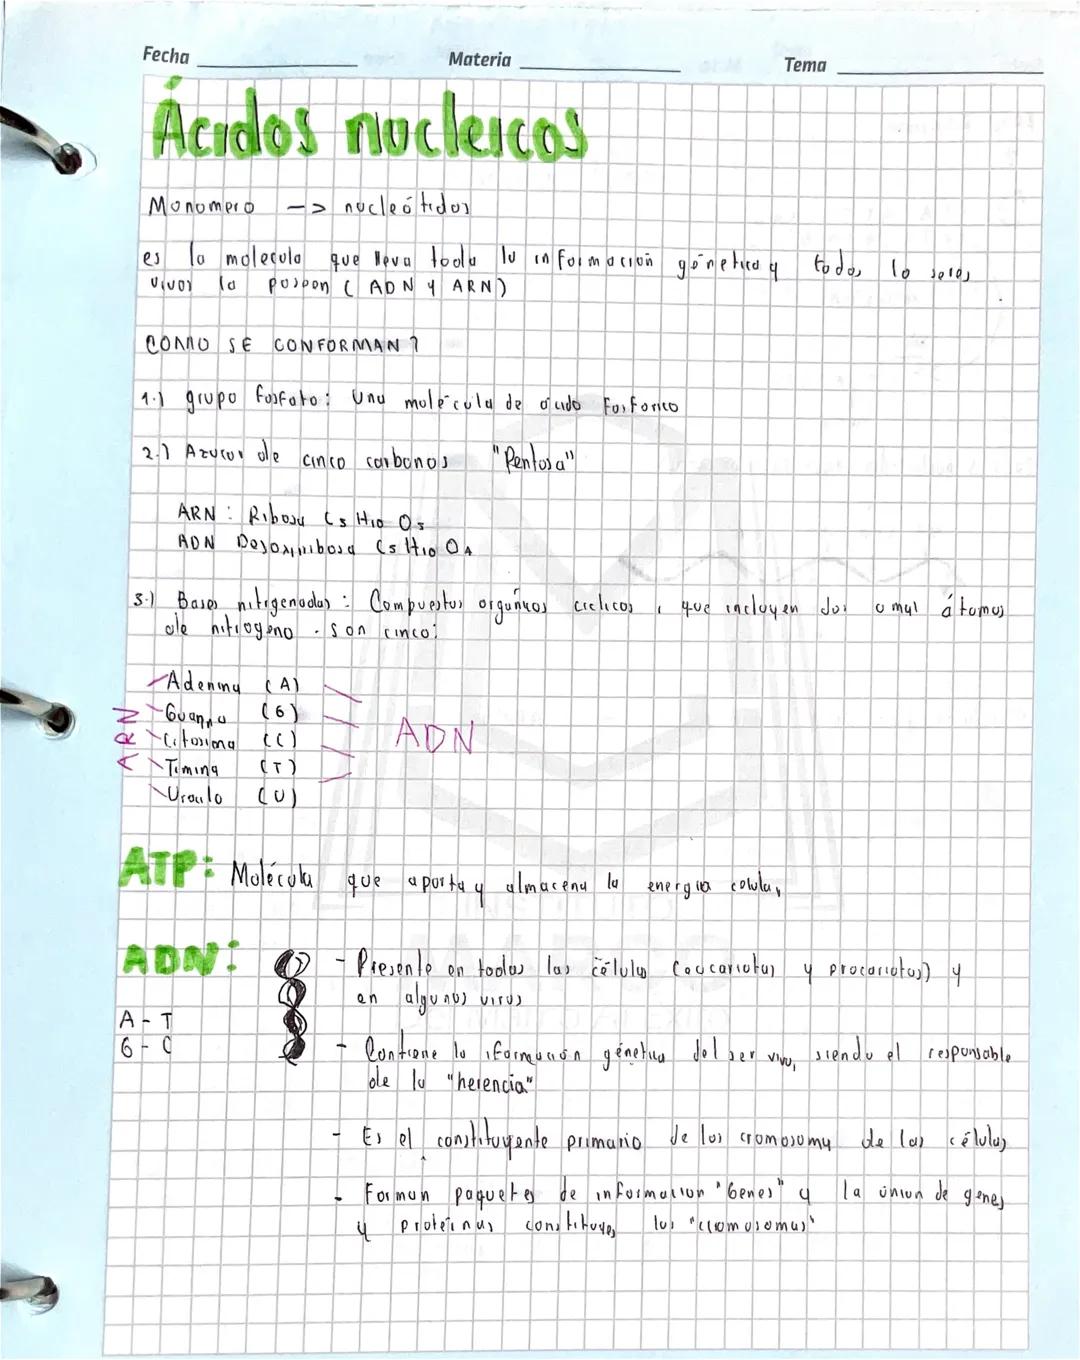 Fecha Materia Tema
Ácidos nucleicos
Monomero -> nucleótidos
es la molecula que lleva toda la información génetica y todos lo seres
vivos la poseen ( ADN y ARN)
COMO SE CONFORMAN ?
1.) grupo fosfato: Una molécula de ácido Fosforico
2.) Azucar de cinco carbonos "Pentosa"
ARN : Ribosa C5 H10 O5
ADN Desoxirribosa C5 H10 O4
3.) Bases nitrgenadas : Compuestos orgánicos ciclicos , que incluyen dos o mas átomos
de nitrogeno . son cinco:
Adenina (A)
Guanina (G)
Citosina (C)
Timina (T)
Uracilo (U)
ARN
ADN
ATP: Molécula que aporta y almacena la energia celular
ADN: - Presente en todas las células (eucariotas y procariotas) y
en algunos virus
A - T
G - C
- Contiene la iformación génetica del ser vivo, siendo el responsable
de la "herencia"
- Es el constituyente primario de los cromosoma de las células
- Forman paquetes de informacion "Genes" y la unión de genes
y proteinas constituyes los "cromosomas"